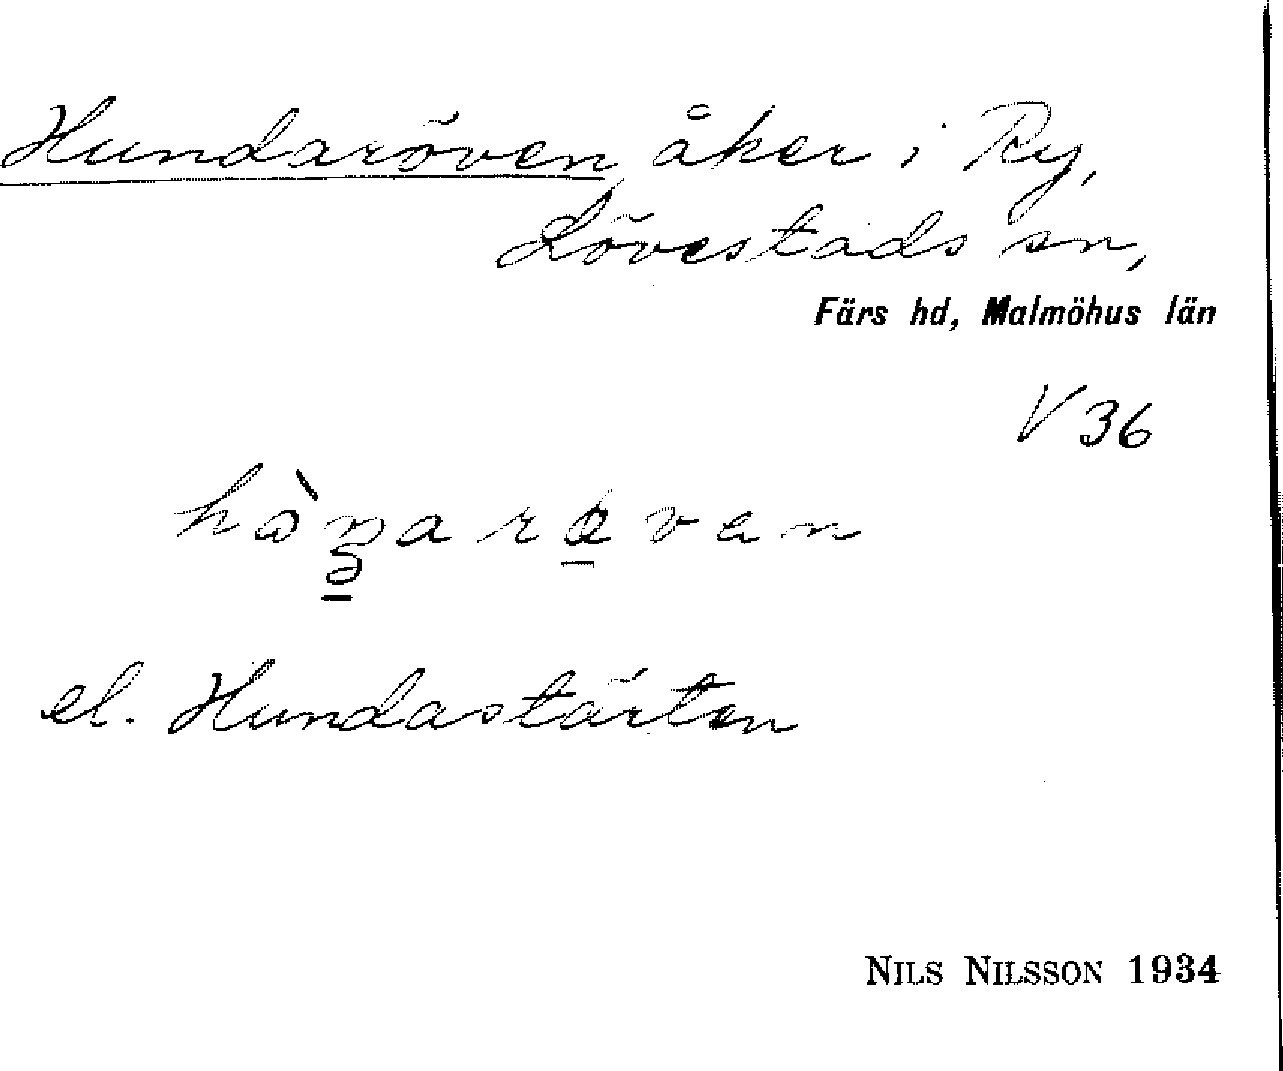 Hundaröven, åker i Ry,
Lövestads sn,
Färs hd, Malmöhus län
V 36
el. Hundastärten
NILS NILSSON 1934